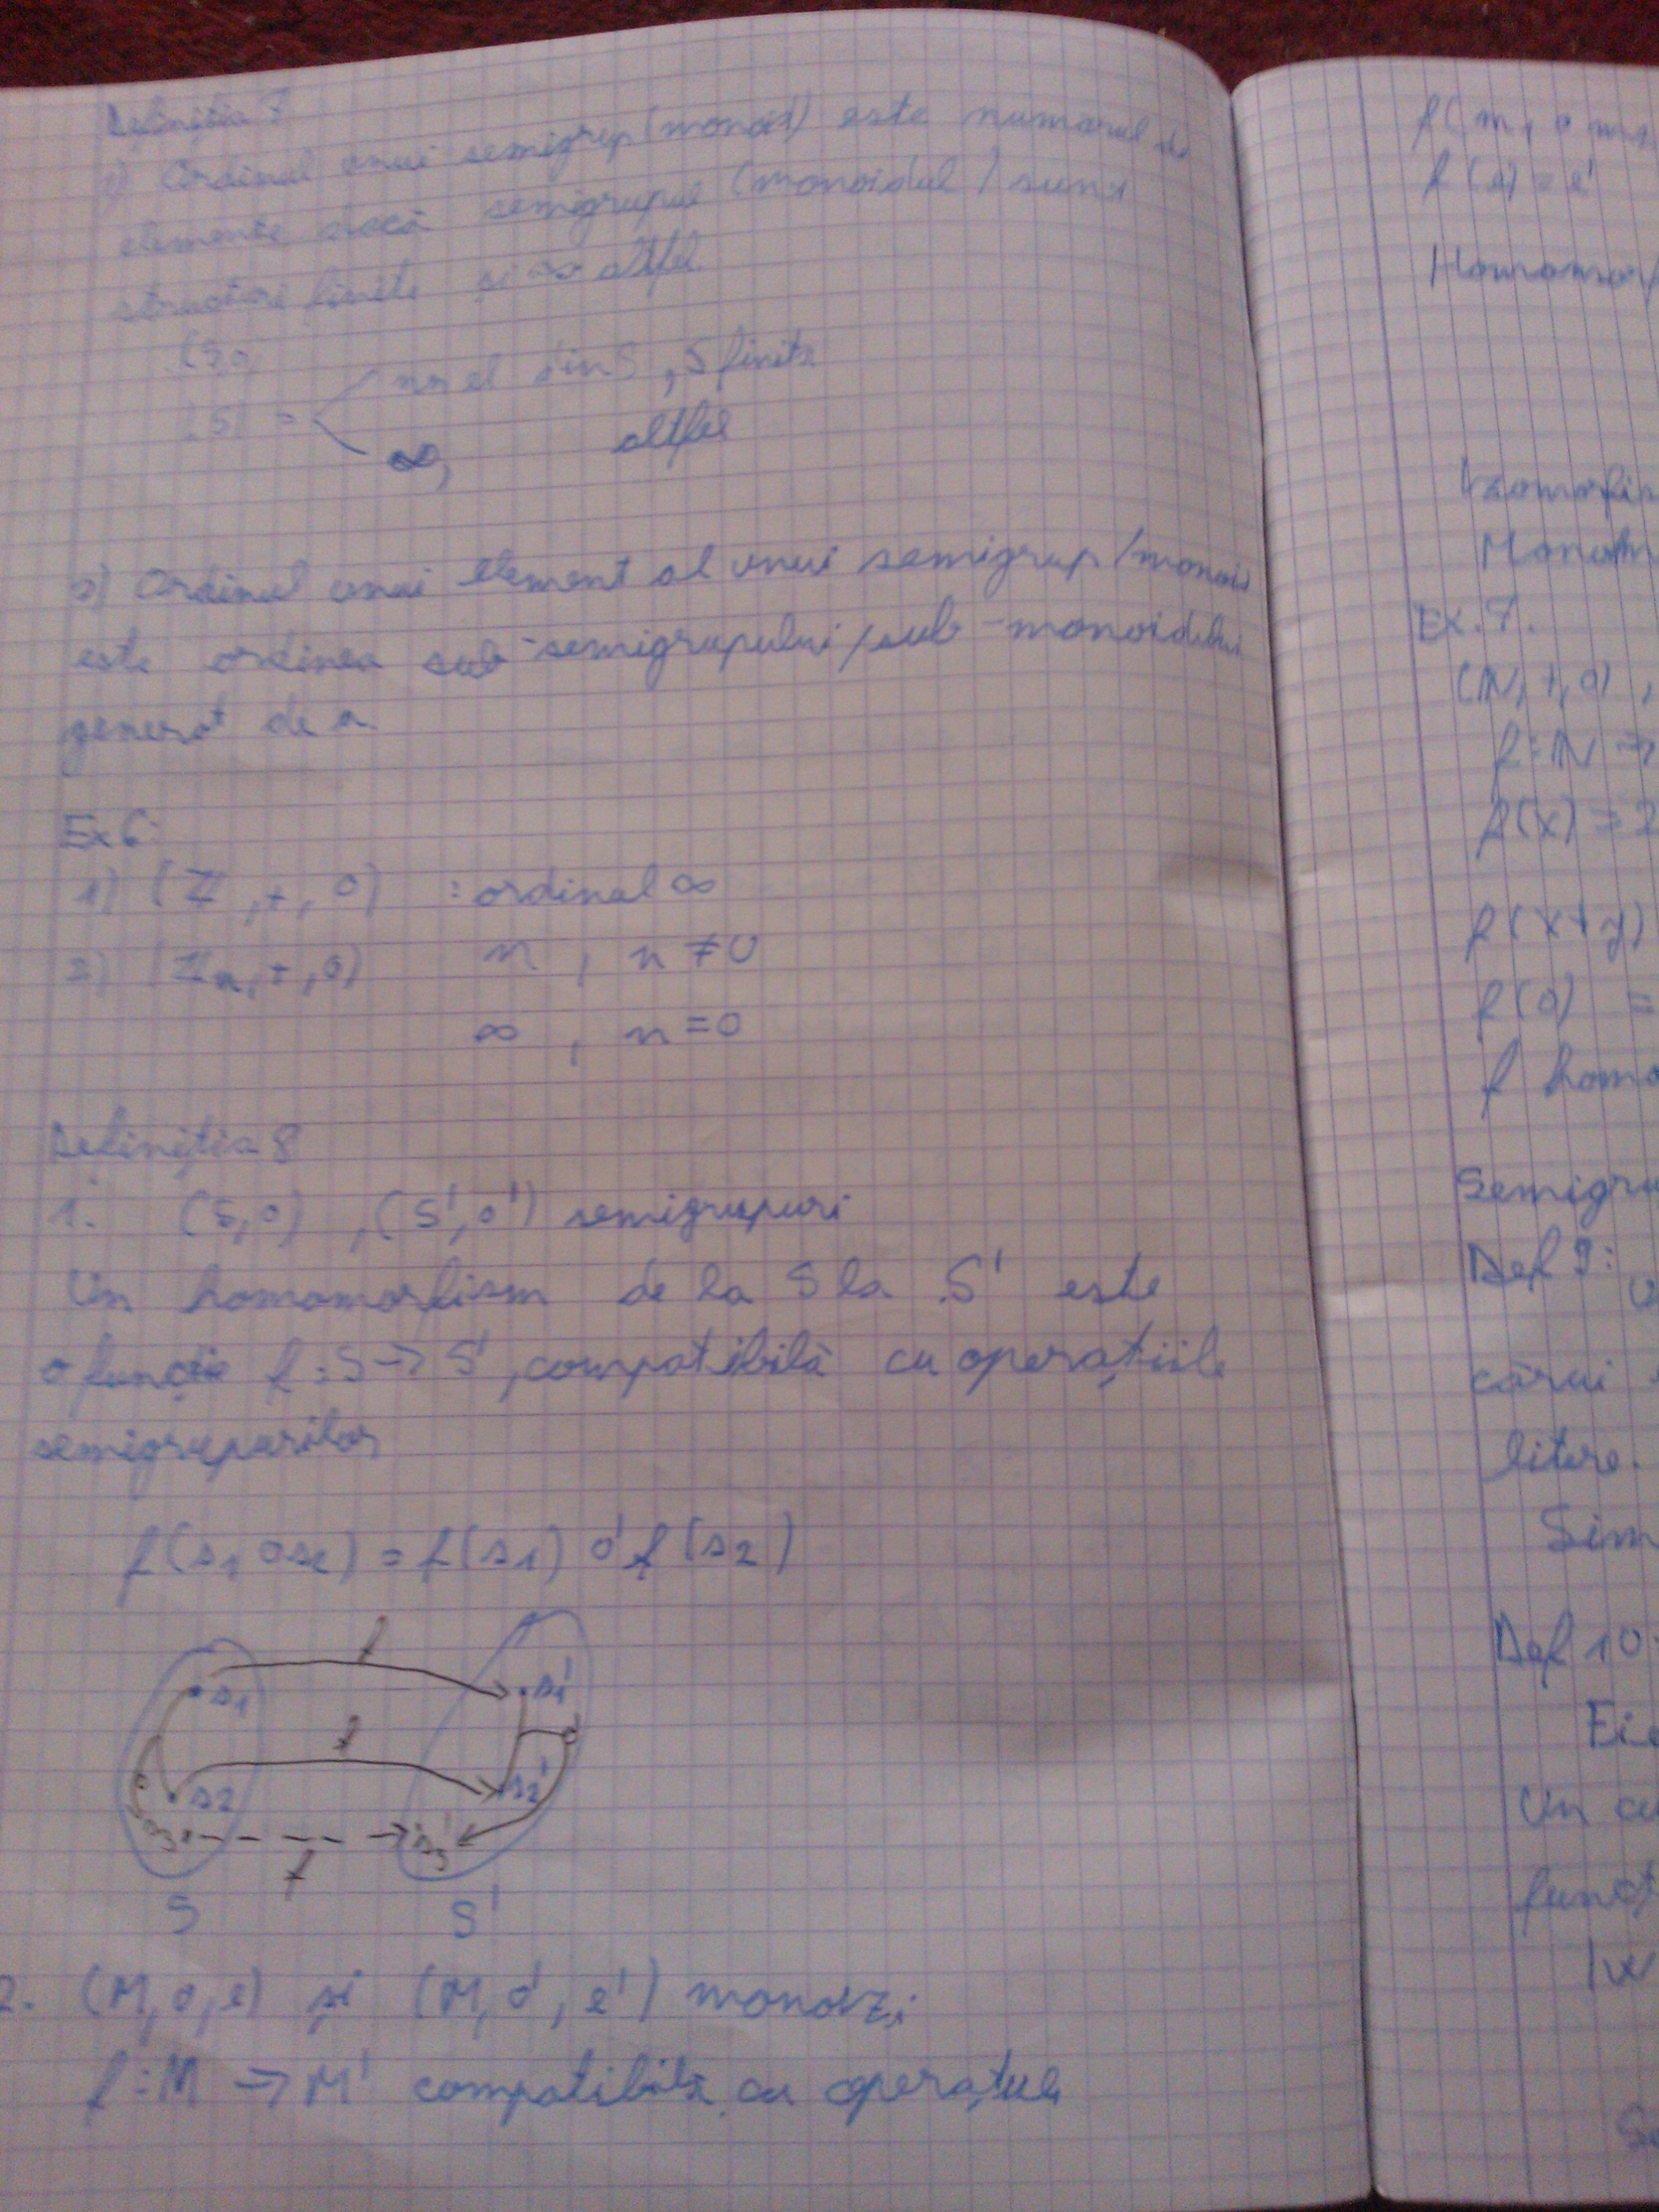 Definiția 7
1) Ordinul unui semigrup (monoid) este numarul de
elemente dacă semigrupul (monoidul) sunt
structuri finite și ∞ altfel.
(S,o)
|S| = nr el din S, S finita
∞, altfel
2) Ordinul unui element al unui semigrup/monoid
este ordinea sub-semigrupului/sub-monoidului
generat de a.
Ex6:
1) (Z,+,0) : ordinal ∞
2) (Zn,+,0) n, n≠0
∞, n=0
Definiția 8
1. (S,o), (S',o') semigrupuri
Un homomorfism de la S la S' este
o funcție f:S→S', compatibilă cu operațiile
semigrupurilor
f(s1 o s2) = f(s1) o' f(s2)
f
s1 s1'
f o'
s2 s2'
o
s3 s3'
f
S S'
2. (M,o,e) și (M,o',e') monoizi
f:M→M' compatibilă cu operațiile
f(m1 o m2
f(e) = e'
Homomorf
Izomorfis
Monom
Ex.7.
(N,+,0),
f:N→
f(x)=2
f(x+y)
f(0) =
f homo
Semigru
Def 9:
cărui
litere.
Sim
Def 10
Fie
Un cu
funct